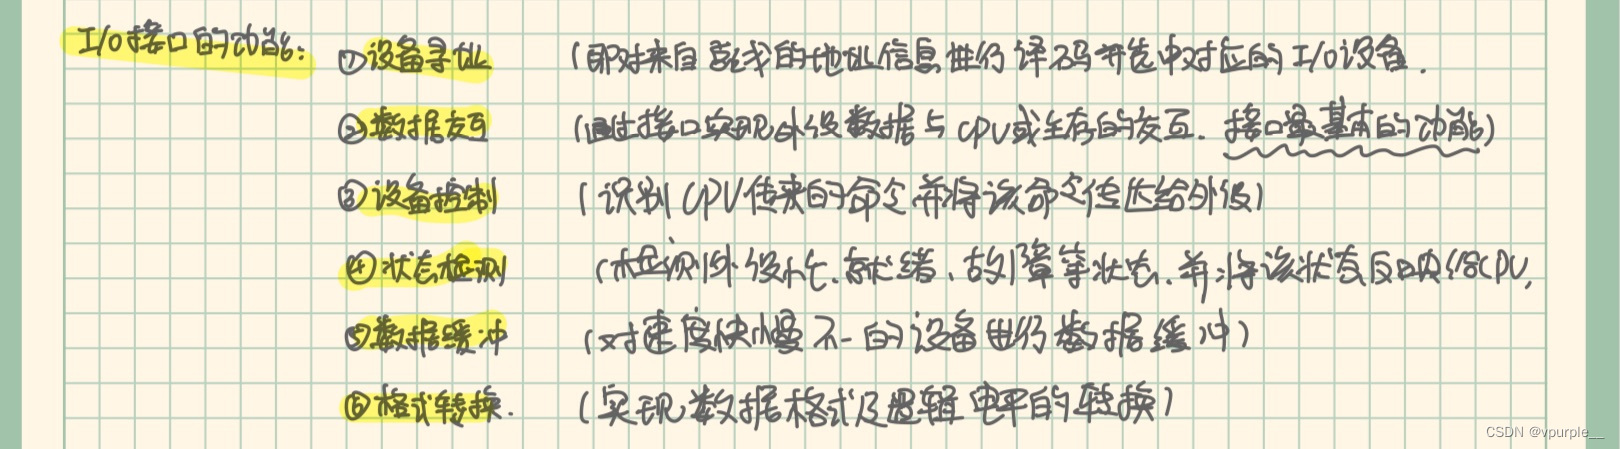 I/O接口的功能: ①设备寻址 (即对来自总线的地址信息进行译码并选中对应的I/O设备.
②数据交互 (通过接口实现外设数据与CPU或主存的交互. 接口最基本的功能)
③设备控制 (识别CPU传来的命令并将该命令传达给外设)
④状态检测 (检测外设忙、就绪、故障等状态、并将该状态反映给CPU,
⑤数据缓冲 (对速度快慢不一的设备进行数据缓冲)
⑥格式转换. (实现数据格式及逻辑电平的转换)
CSDN @vpurple__